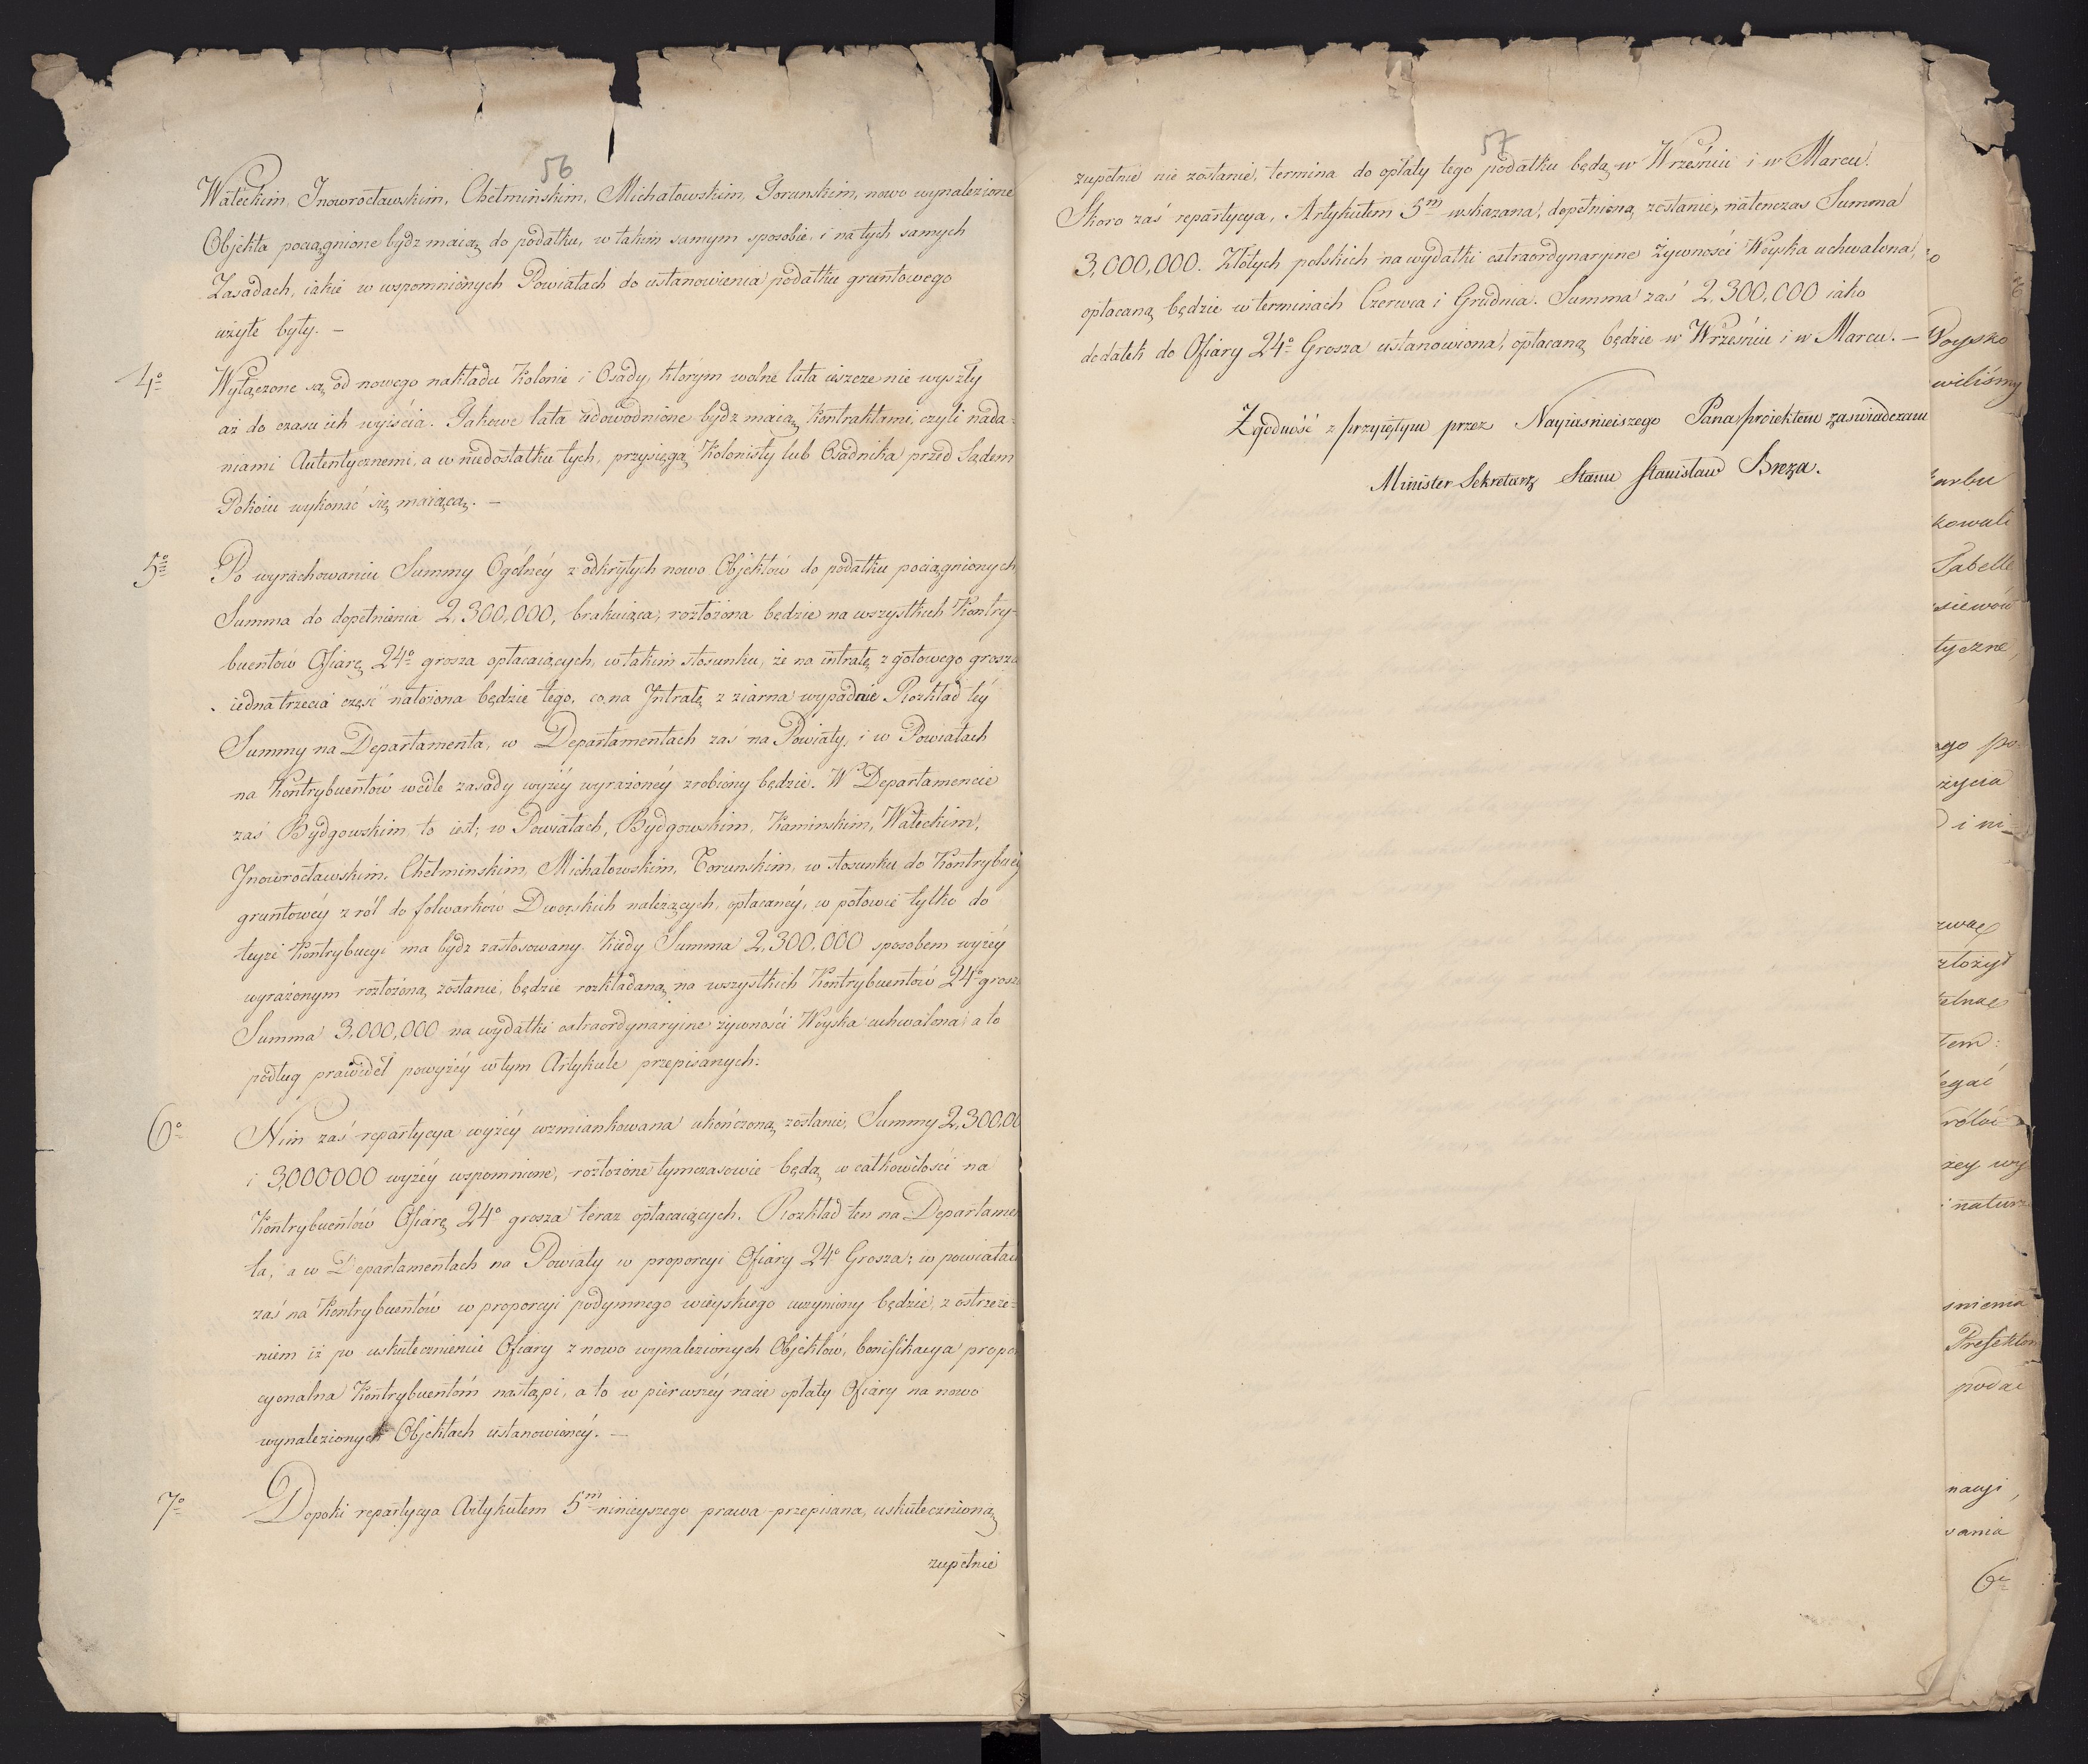 56
Wałeckim, Inowrocławskim, Chełmińskim, Michałowskim, Toruńskim, nowo wynalezione
Objekta pociągnione bydz maią do podatku, w takim samym sposobie, i na tych samych
Zasadach, iakie w wspomnionych Powiatach do ustanowienia podatku gruntowego
użyte były. —
4o Wyłączone są od nowego nakładu Kolonie i Osady, ktorym wolne lata ieszcze nie wyszły
aż do czasu ich wyiścia. Takowe lata udowodnione bydz maią Kontraktami, czyli nada-
niami Autentycznemi, a w niedostatku tych, przysięgą Kolonisty lub Osadnika przed Sądem
Pokoiu wykonać się maiącą. —
5o Po wyrachowaniu Summy Ogólnéy z odkrytych nowo Objektów do podatku pociągnionych
Summa do dopełnienia 2,300,000, brakuiąca, rozłożona będzie na wszystkich Kontry-
buentów Ofiarę 24o grosza opłacaiących, w takim stosunku, że na intratę z gotowego grosza
iedna trzecia część nałożona będzie tego, co na Intratę z ziarna wypadnie Rozkład téy
Summy na Departamenta, w Departamentach zaś na Powiaty, i w Powiatach
na Kontrybuentów wedle zasady wyżéy wyrażonéy zrobiony będzie. W Departamencie
zaś Bydgowskim to iest, w Powiatach, Bydgowskim, Kaminskim, Wałeckim,
Inowrocławskim, Chełminskim, Michałowskim, Torunskim, w stosunku do Kontrybucyi
gruntowéy z ról do folwarków Dworskich należących, opłacanéy, w połowie tylko do
teyże Kontrybucyi ma bydz zastosowany. Kiedy Summa 2,300,000 sposobem wyżéy
wyrażonym rozłożoną zostanie, będzie rozkładaną na wszystkich Kontrybuentów 24o grosza
Summa 3,000,000 na wydatki extraordynaryine żywności Woyska uchwalona, a to
podług prawideł powyżéy w tym Artykule przepisanych.
6o Nim zaś repartycya wyżéy wzmiankowana ukończoną zostanie, Summy 2,300,00
i 3,000000 wyżéy wspomnione, rozłożone tymczasowie będą w całkowitości na
Kontrybuentów Ofiarę 24o grosza teraz opłacaiących. Rozkład ten na Departamen
ta, a w Departamentach na Powiaty w proporcyi Ofiary 24o Grosza; w powiatach
zaś na Kontrybuentów w proporcyi podymnego wieyskiego uczyniony będzie, z ostrzeże-
niem iż po uskutecznieniu Ofiary z nowo wynalezionych Objektów, bonifikacya propor
cyonalna Kontrybuentom nastąpi, a to w pierwszéy racie opłaty Ofiary na nowo
wynalezionych Objektach ustanowionéy. —
7o Dopoki repartycya Artykułem 5m ninieyszego prawa przepisana, uskutecznioną
zupełnie
57
zupełnie nie zostanie, termina do opłaty tego podatku będą w Wrześniu i w Marcu.
Skoro zaś repartycya, Artykułem 5m wskazana, dopełnioną zostanie, natenczas Summa
3,000,000. Złotych polskich na wydatki extraordynaryine żywności Woyska uchwalona,
opłacaną będzie w terminach Czerwca i Grudnia. Summa zaś 2,300,000 iako
dodatek do Ofiary 24o Grosza ustanowiona, opłacaną będzie w Wrześniu i w Marcu. —
Zgodność z przyiętym przez Nayiaśnieiszego Pana proiektem zaswiadczam
Minister Sekretarz Stanu Stanisław Breza.
Woysko
wiliśmy
arbu
kowali
Tabelle
siewów
tyczne,
ego po
życia
i ni-
zwaę
złożył
tem:
egać
zey wy
natur
snienia
Prefektom
podac
nacyi,
wania
6o